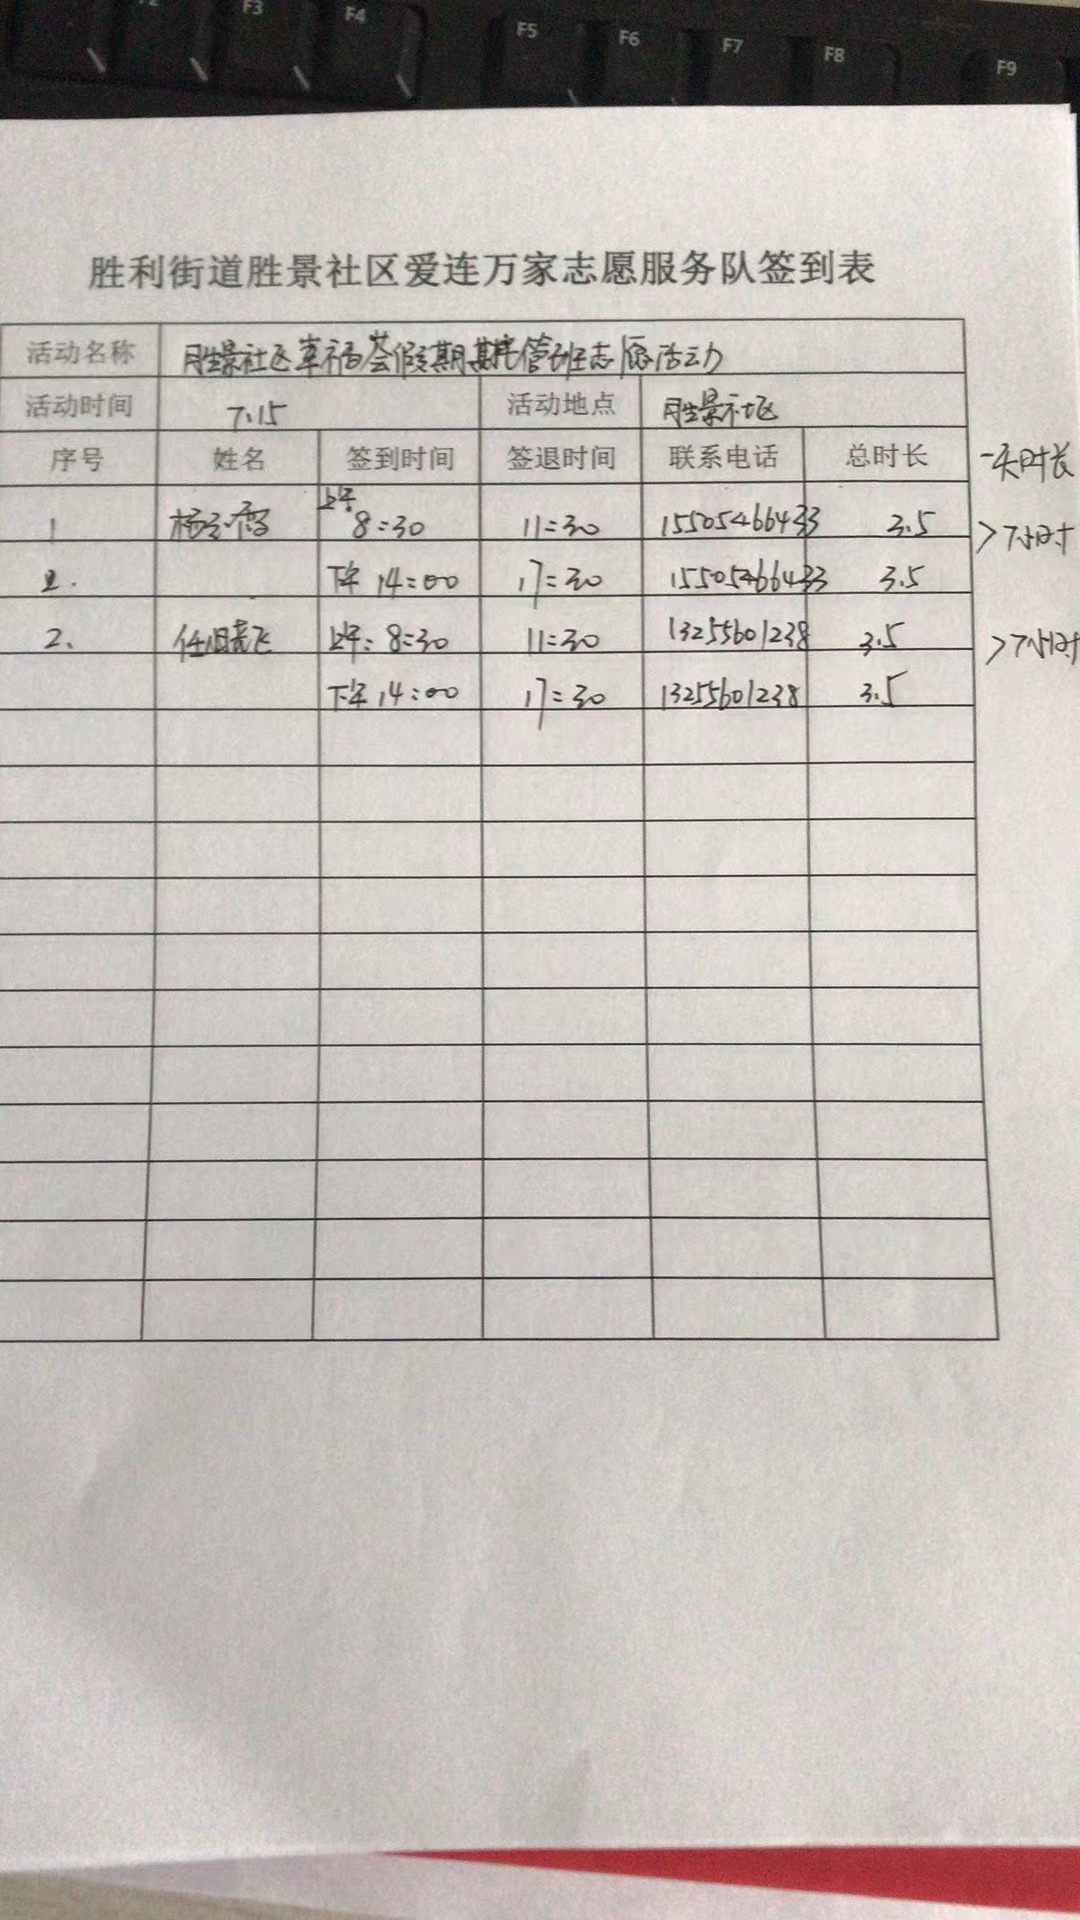 F2 F3 F4 F5 F6 F7 F8 F9
胜利街道胜景社区爱连万家志愿服务队签到表
活动名称 胜景社区幸福荟假期托管班志愿活动
活动时间 7.15 活动地点 胜景社区
序号 姓名 签到时间 签退时间 联系电话 总时长 一天时长
1 上午 8:30 11:30 15505466433 3.5 >7小时
2. 下午 14:00 17:30 15505466433 3.5
2. 任晓飞 上午: 8:30 11:30 13255601238 3.5 >7小时
下午 14:00 17:30 13255601238 3.5